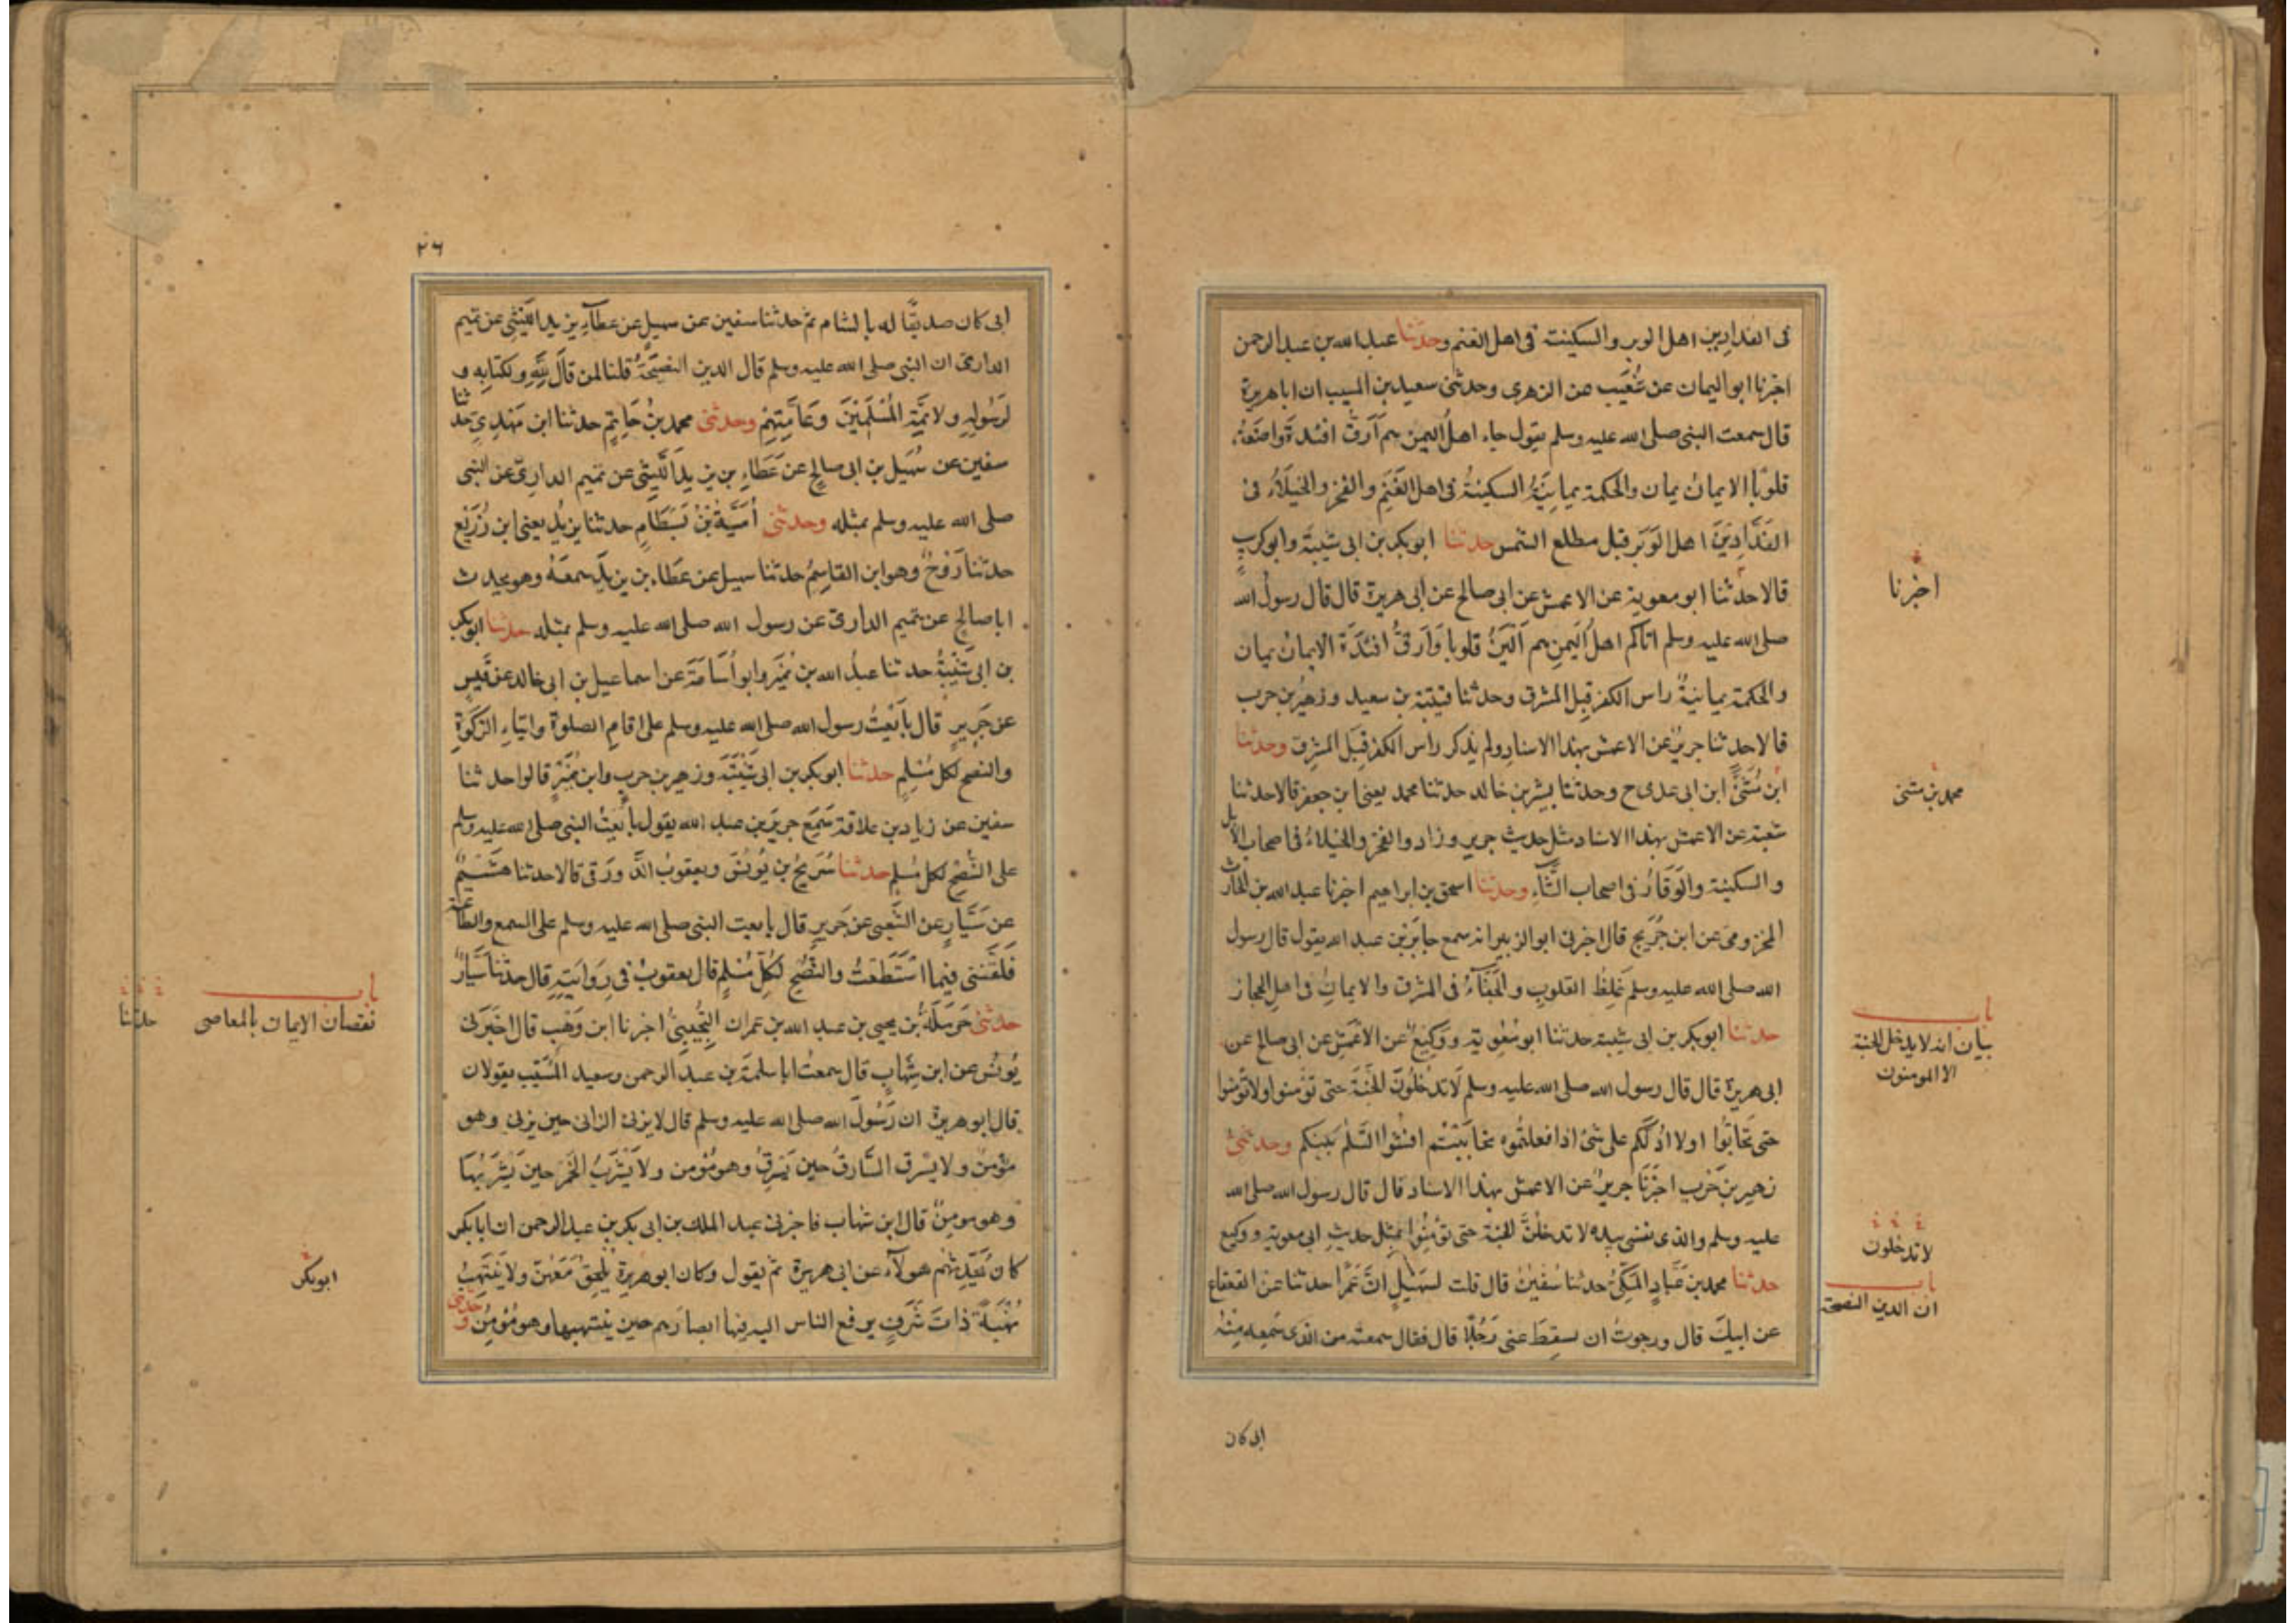 فى الفدادين اهل الوبر والسكينة فى اهل الغنم وحدثنا عبد الله بن عبد الرحمن
اخبرنا ابو اليمان عن شُعَيب عن الزهرى وحدثنى سعيد بن المسيب ان ابا هريرة
قال سمعت النبى صلى الله عليه وسلم يقول جاء اهلُ اليمن هم اَرَقُّ افئدةً واضعَفُ
قلوبًا الايمانُ يمان والحكمة يمانِيَّةُ السكينةُ فى اهل الغَنَمِ والفخر والخُيَلَاءُ فى
الفَدَّادِيْنَ اهل الوَبَر قبل مطلع الشمس حدثنا ابو بكر بن ابى شيبة وابو كريبٍ
قالا حدثنا ابو معوية عن الاعمش عن ابى صالح عن ابى هريرة قال قال رسول الله
صلى الله عليه وسلم اتاكم اهلُ اليمن هم اَلْيَنُ قلوبا وَاَرَقُّ افئدَةً الايمانُ يمان
والحكمة يمانيةٌ راس الكفر قِبل المشرق وحدثنا قتيبة بن سعيد وزهير بن حرب
قالا حدثنا جريرٌ عن الاعمش بهذا الاسناد ولم يذكر راس الكفر قِبَل المشرق وحدثنا
ابن مُثَنّىً ابن ابى عدى ح وحدثنا بشر بن خالد حدثنا محمد يعنى ابن جعفر قالا حدثنا
شعبة عن الاعمش بهذا الاسناد مثل حديث جرير وزاد والفخر والخيلاءُ فى اصحاب الابل
والسكينة والوَقَارُ فى اصحاب الشَّآءِ وحدثنا اسحق بن ابراهيم اخبرنا عبد الله بن الحارث
المخزومى عن ابن جُرَيج قال اخبرنى ابو الزبير انه سمع جابرَ بن عبد الله يقول قال رسول
الله صلى الله عليه وسلم غِلَظُ القلوبِ والجَفَآءُ فى المشرق والايمانُ فى اهلِ الحجاز
حدثنا ابو بكر بن ابى شيبة حدثنا ابو مُعٰوية ووَكِيعٌ عن الاعْمَشِ عن ابى صالح عن
ابى هريرة قال قال رسول الله صلى الله عليه وسلم لَا تدْخُلُوْنَ الجَنَّةَ حتى تؤمنوا ولا تؤمنوا
حتى تحَابُّوا اولا ادُلُّكم على شئ اذا فعلتُموه تحَابَبْتُم افشُوا السَّلٰمَ بَينكم وحدثنى
زهير بن حَرْب اخبَرَنا جريرٌ عن الاعمش بهذا الاسناد قال قال رسول الله صلى الله
عليه وسلم والذى نفسى بيده لا تدخلُنَّ الجنة حتى تؤمِنُوا بمثل حديثِ ابى معوية ووكيع
حدثنا محمد بن عَبَّادٍ المَكّىُّ حدثنا سُفيٰنُ قال قلت لسُهَيْلٍ انَّ عَمْرًا حدثنا عن القعقاع
عن ابيكَ قال ورجوتُ ان يسقِطَ عنى رَجُلًا قال فقال سمعته من الذى سَمِعه مِنْهُ
ابى كان
اخبرنا
محمد بن مثنى
باب
بيان انه لا يدخل الجنة
الا المومنون
لا تدخلون
باب
ان الدين النصيحة
٢٦
ابى كان صديقًا له بالشام ثم حدثنا سفين عن سهيلٍ عن عطآءِ بن يزيد اللَّيْثِى عن تميم
الدارى ان النبى صلى الله عليه وسلم قال الدين النصيحَةُ قلنا لمن قالَ لِلّٰهِ ولكتَابِه و
لرَسُولِهِ ولائمَّةِ المُسْلَمِيْنَ وَعَامَّتِهِمْ وحدثنى محمد بنُ حَاتِمٍ حدثنا ابن مَهْدِىٍّ حدثنا
سفين عن سُهَيل بن ابى صالحٍ عن عَطَاءِ بن يزيدَ اللَّيثى عن تميم الدارىّ عن النبى
صلى الله عليه وسلم بمثله وحدثنى اُمَيَّةُ بْنُ بَسَطَامٍ حدثنا يزيدُ يعنى ابن زُرَيْعٍ
حدثنا رَوْحٌ وهو ابن القاسِمِ حدثنا سهيل عن عَطاء بن يزيدَ سمعَهُ وهو يحدث
ابا صالحٍ عن تميم الدارى عن رسول الله صلى الله عليه وسلم بمثله حدثنا ابو بكر
بن ابى شَيْبَةُ حدثنا عبدُ الله بن نُمَيْرٍ وابو اُسَامَةَ عن اسماعيل بن ابى خالد عن قَيسٍ
عن جَرِيرٍ قال بايَعْتُ رسول الله صلى الله عليه وسلم على اقامِ الصلوة وايتاءِ الزكوةِ
والنصح لكل مُسْلِمٍ حدثنا ابو بكر بن ابى شَيْبَةَ وزهير بن حرب وابن نُمَيْرٍ قالوا حدثنا
سفين عن زياد بن علاقة سَمِعَ جريرَ بن عبد الله يقول بايَعْتُ النبى صلى الله عليه وسلم
على النُّصْحِ لكل مُسلِمٍ حدثنا سُرَيجُ بن يُونُسَ ويعقوبُ الدَّورَقى قالا حدثنا هُشَيْمٌ
عن سَيَّارٍ عن الشَّعبى عن جَريرٍ قال بايعت النبى صلى الله عليه وسلم على السمع والطاعة
فلَقَّنَنى فيما استَطَعْتُ والنُّصْحِ لكُلِّ مُسْلِمٍ قال يعقوبُ فى رِوَايَتِهِ قال حدثنا سَيَّارٌ
حدثنى حَرمَلَةُ بن يحيى بن عبد الله بن عمران التُّجِيبِىُّ اخبرنا ابن وَهْبٍ قال اخبَرَنى
يُونُسُ عن ابن شِهَابٍ قال سمعتُ ابا سلمةَ بن عبد الرحمن وسعيد المسَيّب يقولان
قال ابو هريرة ان رَسُولَ الله صلى الله عليه وسلم قال لا يزنى الزانى حين يزنى وهو
مؤمنٌ ولا يسْرق السَّارقُ حين يَسْرِقُ وهو مُؤمن ولا يَشْرَبُ الخَمْرَ حينَ يَشْرَبُهَا
وهو مومِنٌ قال ابن شهاب فاخبرنى عبد الملك بن ابى بكر بن عبد الرحمن ان ابا بكر
كانَ يُحَدِّثُهم هولَآءِ عن ابى هريرة ثم يقول وكان ابو هريرة يُلحِقُ مَعَهُنَّ ولا يَنْتَهِبُ
نُهْبَةً ذاتَ شَرَفٍ يرفع الناس اليه فيها ابصارَهم حين ينتهبها وهو مُؤمِنٌ وحدثنى
باب
نقصان الايمان بالمعاصى
حدثنا
ابو بكر